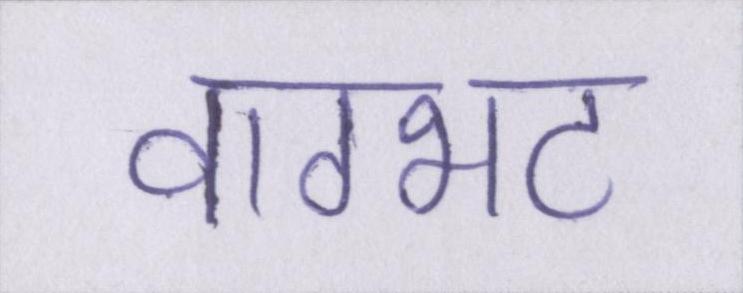 वाग्भट